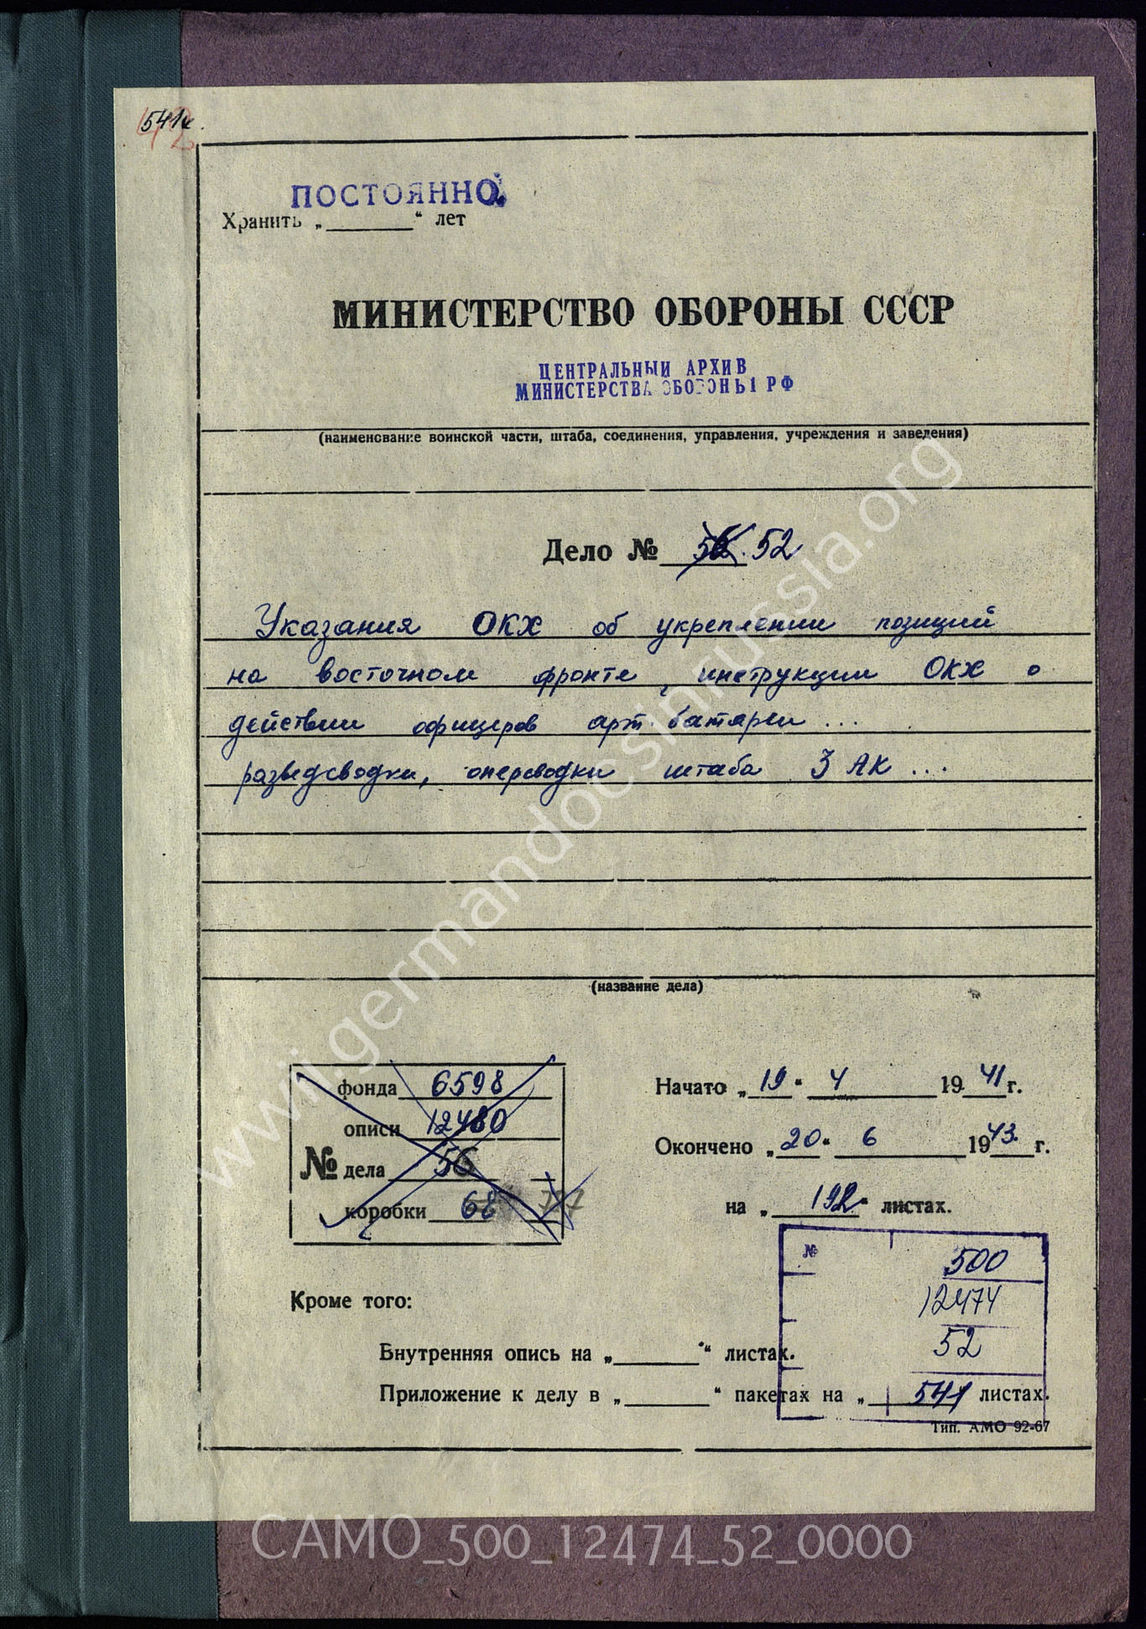 541к.
ПОСТОЯННО.
Хранить „ “ лет
МИНИСТЕРСТВО ОБОРОНЫ СССР
ЦЕНТРАЛЬНЫЙ АРХИВ
МИНИСТЕРСТВА ОБОРОНЫ РФ
(наименование воинской части, штаба, соединения, управления, учреждения и заведения)
Дело № 56. 52
Указания ОКХ об укреплении позиций
на восточном фронте, инструкции ОКХ о
действии офицеров арт. батареи ...
разведсводки, оперсводки штаба 3 АК ...
(название дела)
фонда 6598
описи 12480
№ дела 56
коробки 68
Начато „19“ 4 1941 г.
Окончено „20“ 6 1943 г.
на „192“ листах.
№ 500
12474
52
541
Кроме того:
Внутренняя опись на „ “ листах.
Приложение к делу в „ “ пакетах на „ листах.
Тип. АМО 92-67
www.germandocsinrussia.org
CAMO_500_12474_52_0000